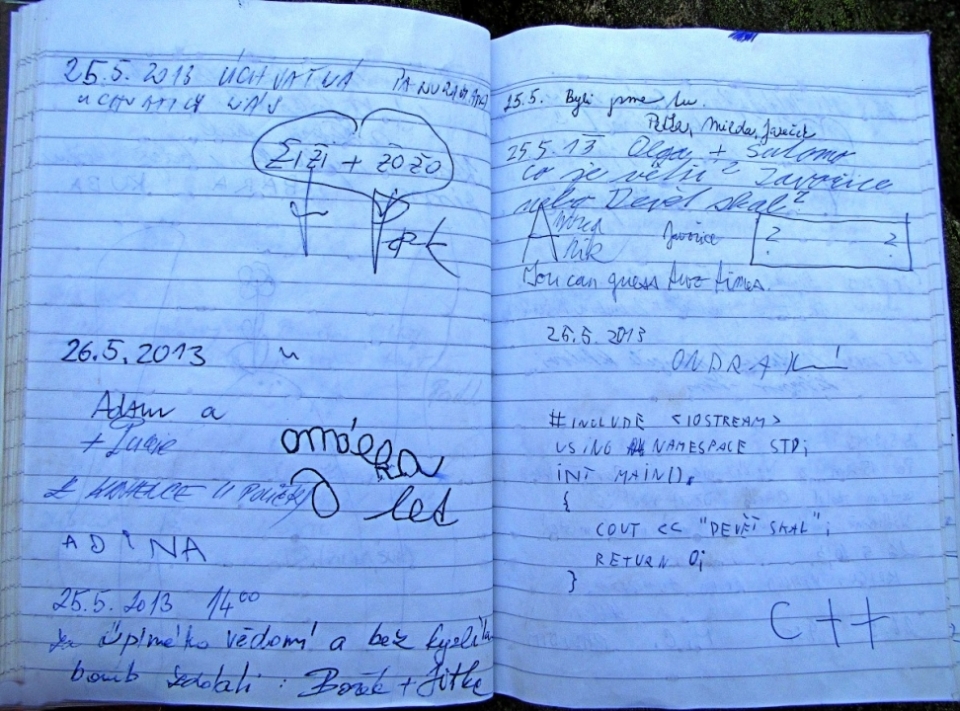 25.5. 2013 ÚCHVATNÁ PANORAMATA
UCHVÁTILY NÁS
ŽIŽI + ŽOŽO
26.5.2013
Adam a
+ Lucie
Z KUNRATIC U POLIČKY
let
ADINA
25.5. 2013 14 00
Za úplného vědomí a bez kyslíku
bomb zdolali : Borák + Jitka
25.5. Byli jsme tu.
Petra, Milda, Jareček
25.5.13 Olga + Salomo
Co je větší? Javořice
nebo Devět skal?
Javořice
2 2
You can guess two times.
26.5. 2013
ONDRA
#INCLUDE <IOSTREAM>
USING NAMESPACE STD;
INT MAIN();
{
COUT << "DEVĚT SKAL";
RETURN 0;
}
C++